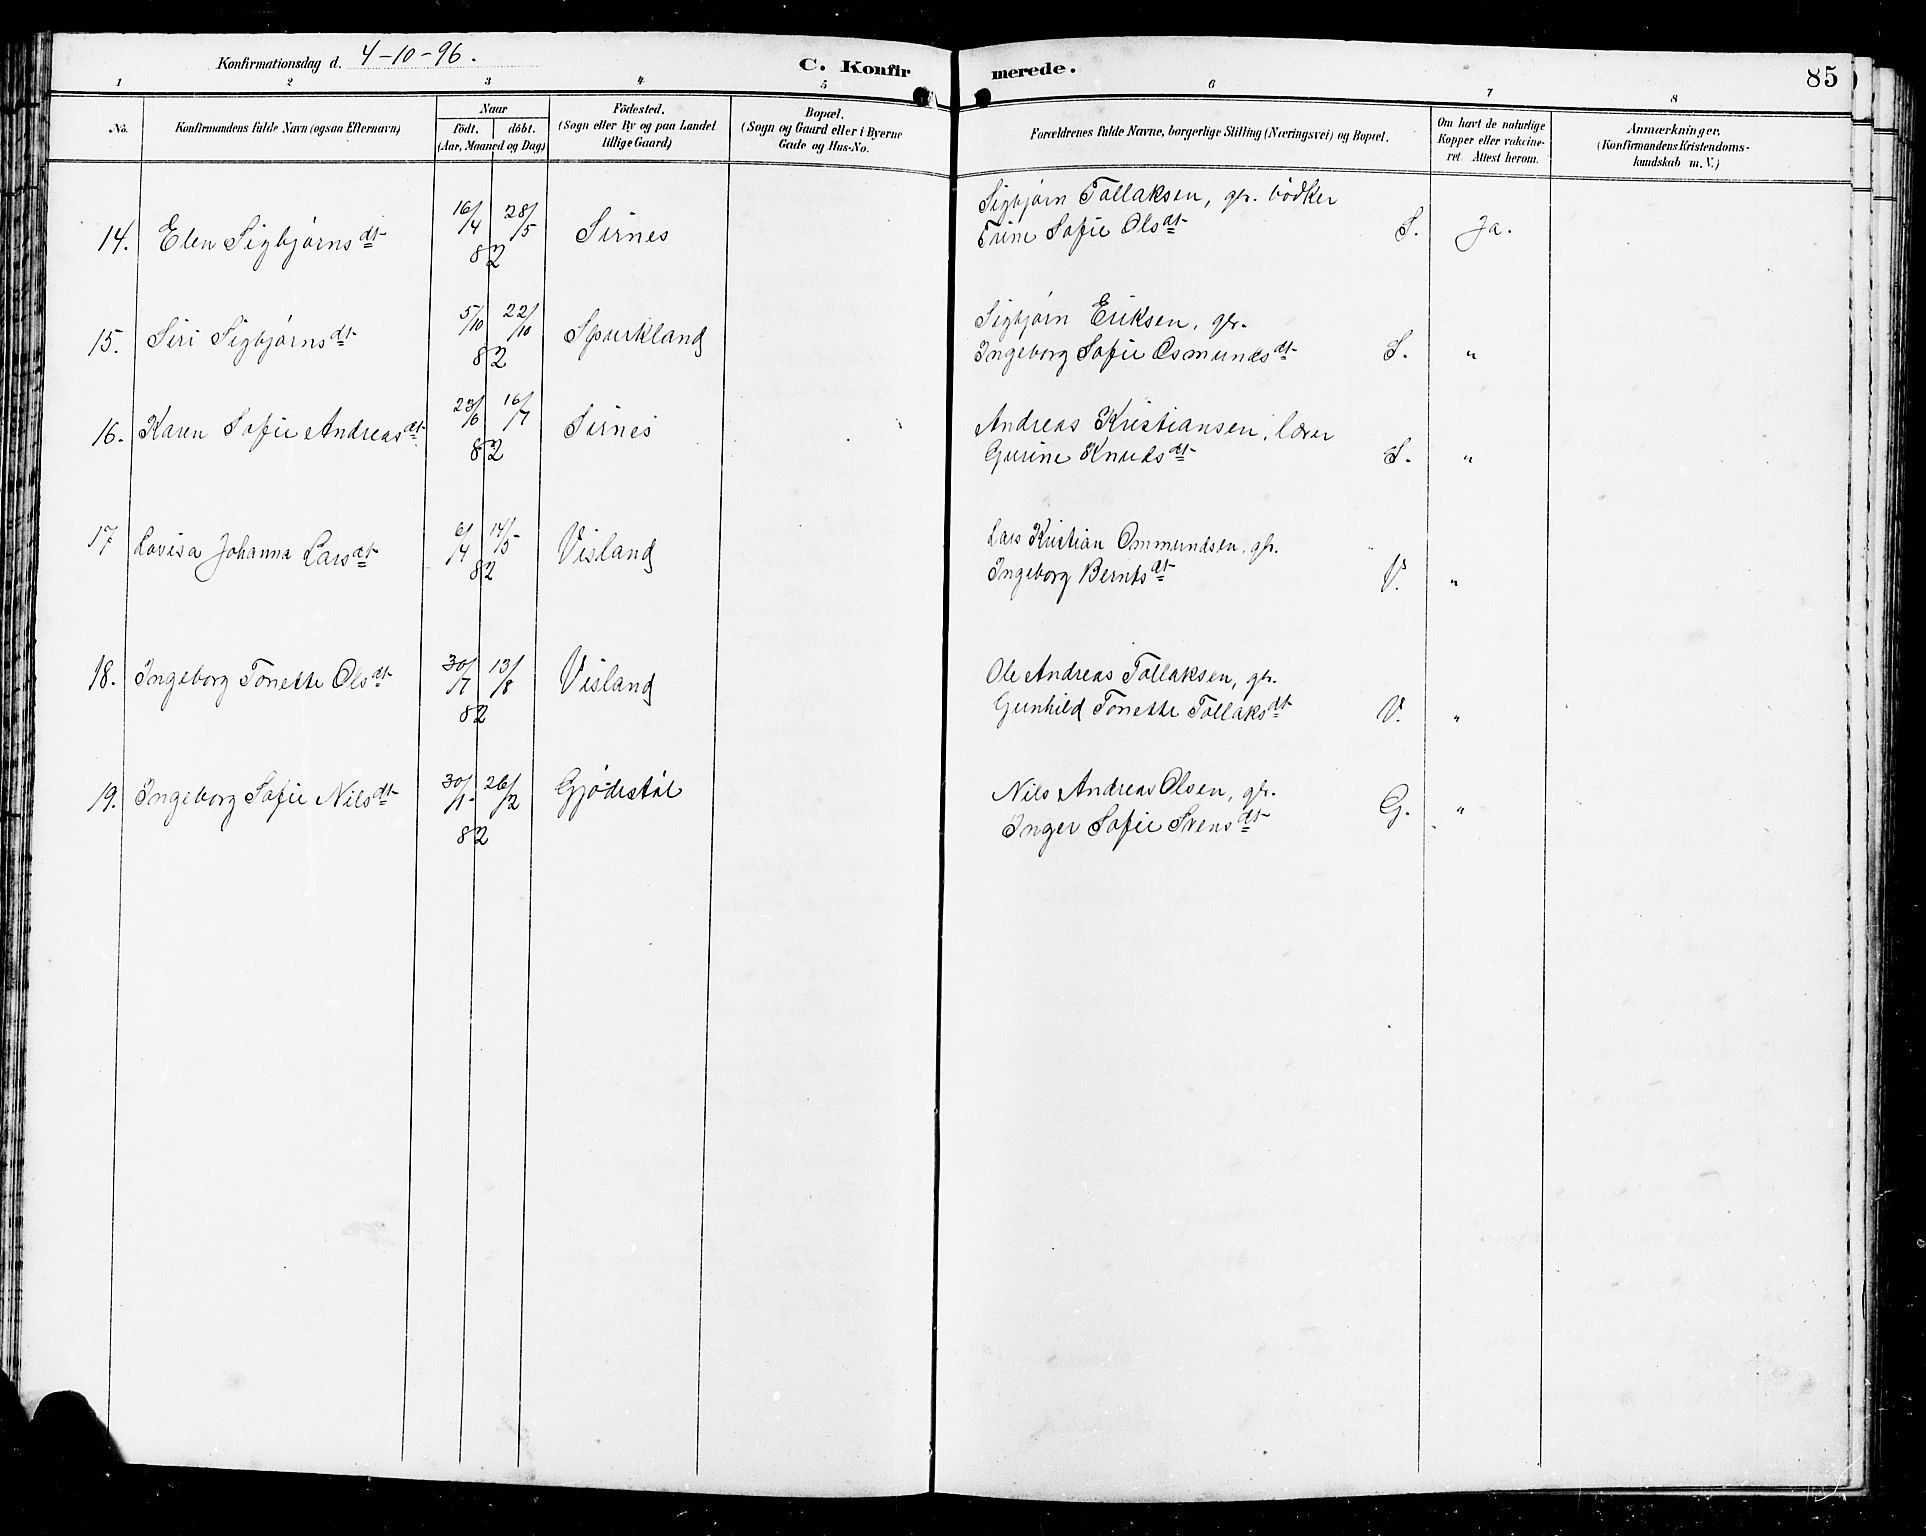 Konfirmationsdag d. 4-10-96.
C. Konfirmerede.
85
1 2 3 4 5 6 7 8
No.
Konfirmandens fulde Navn (ogsaa Efternavn)
Naar
Födt. döbt.
(Aar, Maaned og Dag)
Födested.
(Sogn eller By og paa Landet
tillige Gaard)
Bopæl.
(Sogn og Gaard eller i Byerne
Gade og Hus-No.
Forældrenes fulde Navne, borgerlige Stilling (Næringsvei) og Bopæl.
Om havt de naturlige
Kopper eller vakcine-
ret. Attest herom.
Anmærkninger.
(Konfirmandens Kristendoms-
kundskab m. V.)
14. Elen Sigbjørnsdt 16/4 28/5 82 Sirnes
Sigbjørn Tollaksen, gr. bödker
Trine Sofie Olsdt S. Ja.
15. Siri Sigbjørnsdt 5/10 22/10 82 Spurkland
Sigbjørn Eriksen, gr.
Ingeborg Sofie Osmundsdt S. "
16. Karen Sofie Andreasdt 23/6 16/7 82 Sirnes
Andreas Kristiansen, lærer
Gurine Knudsdt S. "
17 Lovisa Johanna Larsdt 6/4 14/5 82 Visland
Lars Kristian Ommundsen, gr.
Ingeborg Berntsdt V. "
18. Ingeborg Tonette Olsdt 30/7 13/8 82 Visland
Ole Andreas Tollaksen, gr.
Gunhild Tonette Tollaksdt V. "
19. Ingeborg Sofie Nilsdt 30/1 26/2 82 Gjødestøl
Nils Andreas Olsen, gr.
Inger Sofie Svensdt G. "